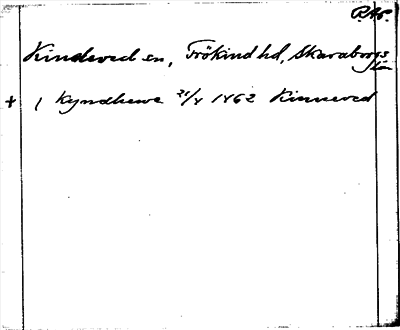 R.Ap.
Kindeved sn, Frökind hd, Skaraborgs
län
+ ( Kyndhewe 21/4 1462 Kinneved